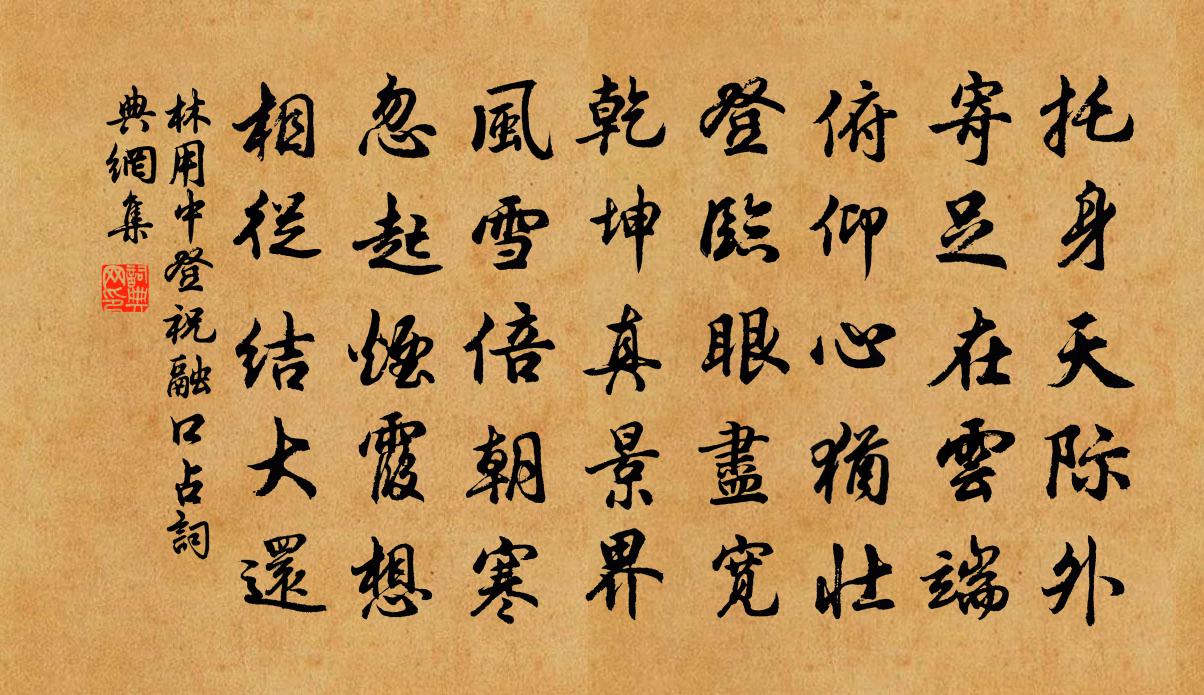 托身天际外
寄足在雲端
俯仰心猶壮
登臨眼盡宽
乾坤真景界
風雪倍朝寒
忽起煙霞想
相從结大還
林用中登祝融口占詞
典網集
詞典网印